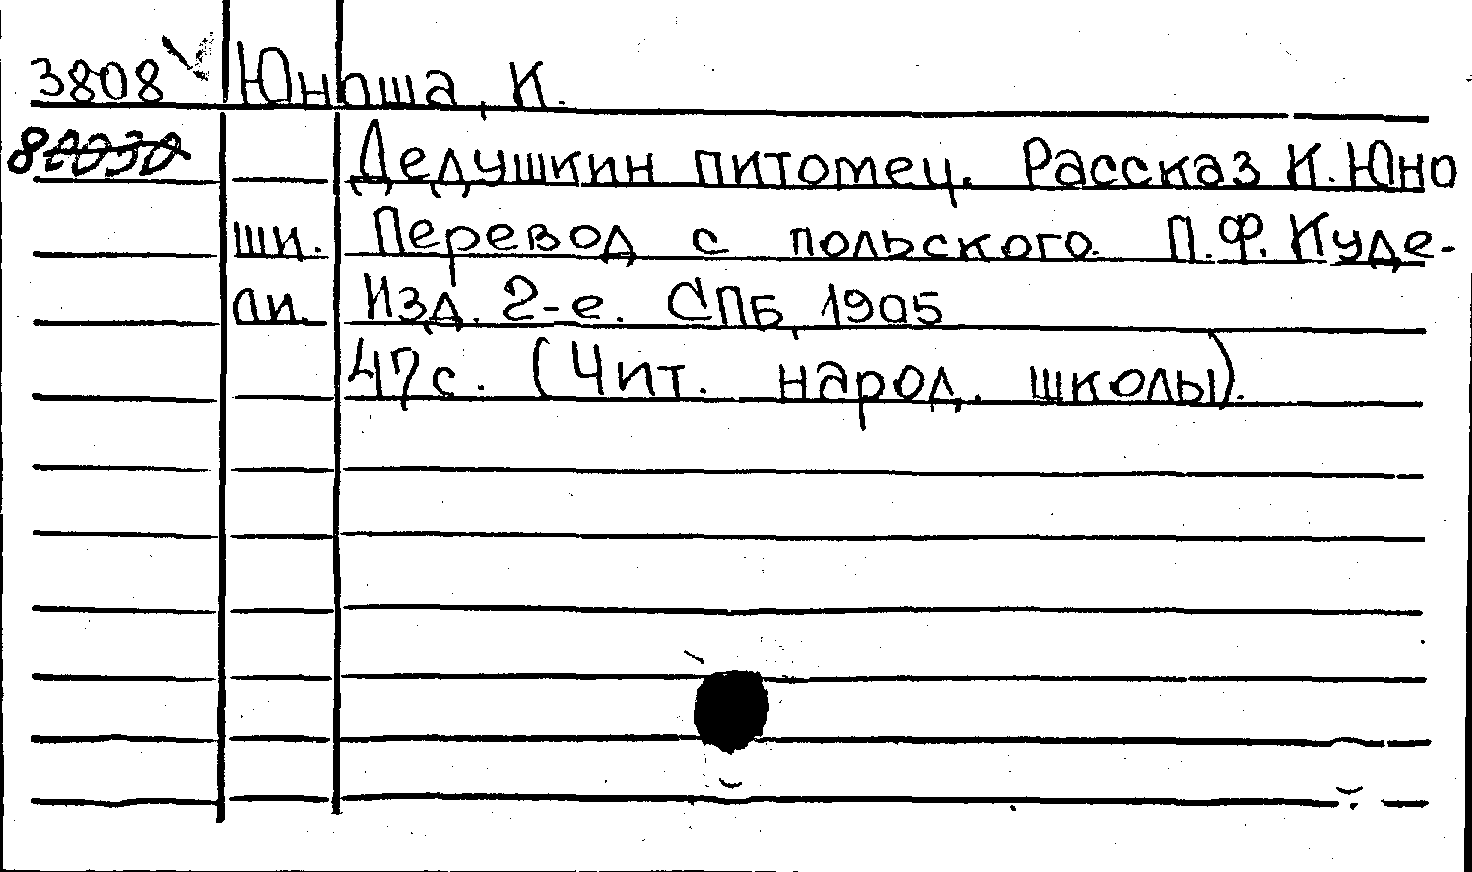 3808 Юноша, К.
80030 Дедушкин питомец. Рассказ К. Юно
ши. Перевод с польского П.Ф. Куде-
ли. Изд. 2-е. СПБ, 1905
47с. (Чит. народ. школы).